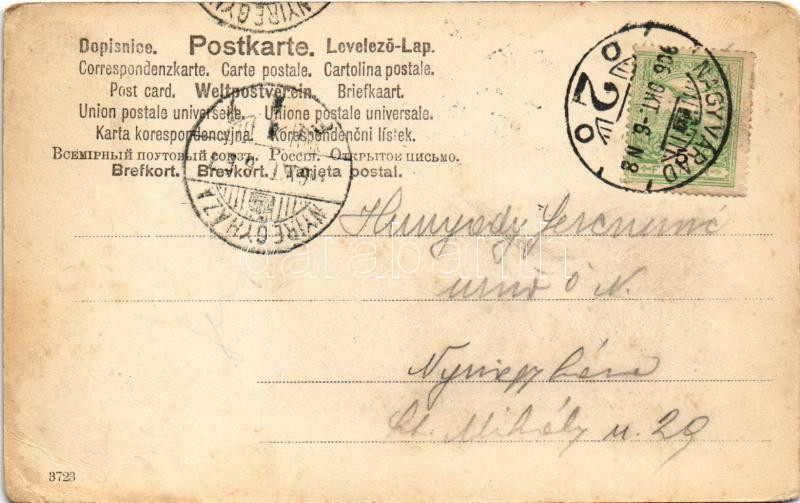 NYIREGYH
Dopisnice. Postkarte. Levelező-Lap.
Correspondenzkarte. Carte postale. Cartolina postale.
Post card. Weltpostverein. Briefkaart.
Union postale universelle. Unione postale universale.
Karta korespondencyjna. Korespondenční lístek.
Всемірный почтовый союзъ. Россія. Открытое письмо.
Brefkort. Brevkort. Tarjeta postal.
NAGYVÁRAD
906 OKT. -6. N8
NYIREGYHÁZA
Hunyady Ferencné
urnő ő N.
Nyiregyháza
Szt. Mihály u. 29
darabanth
3723